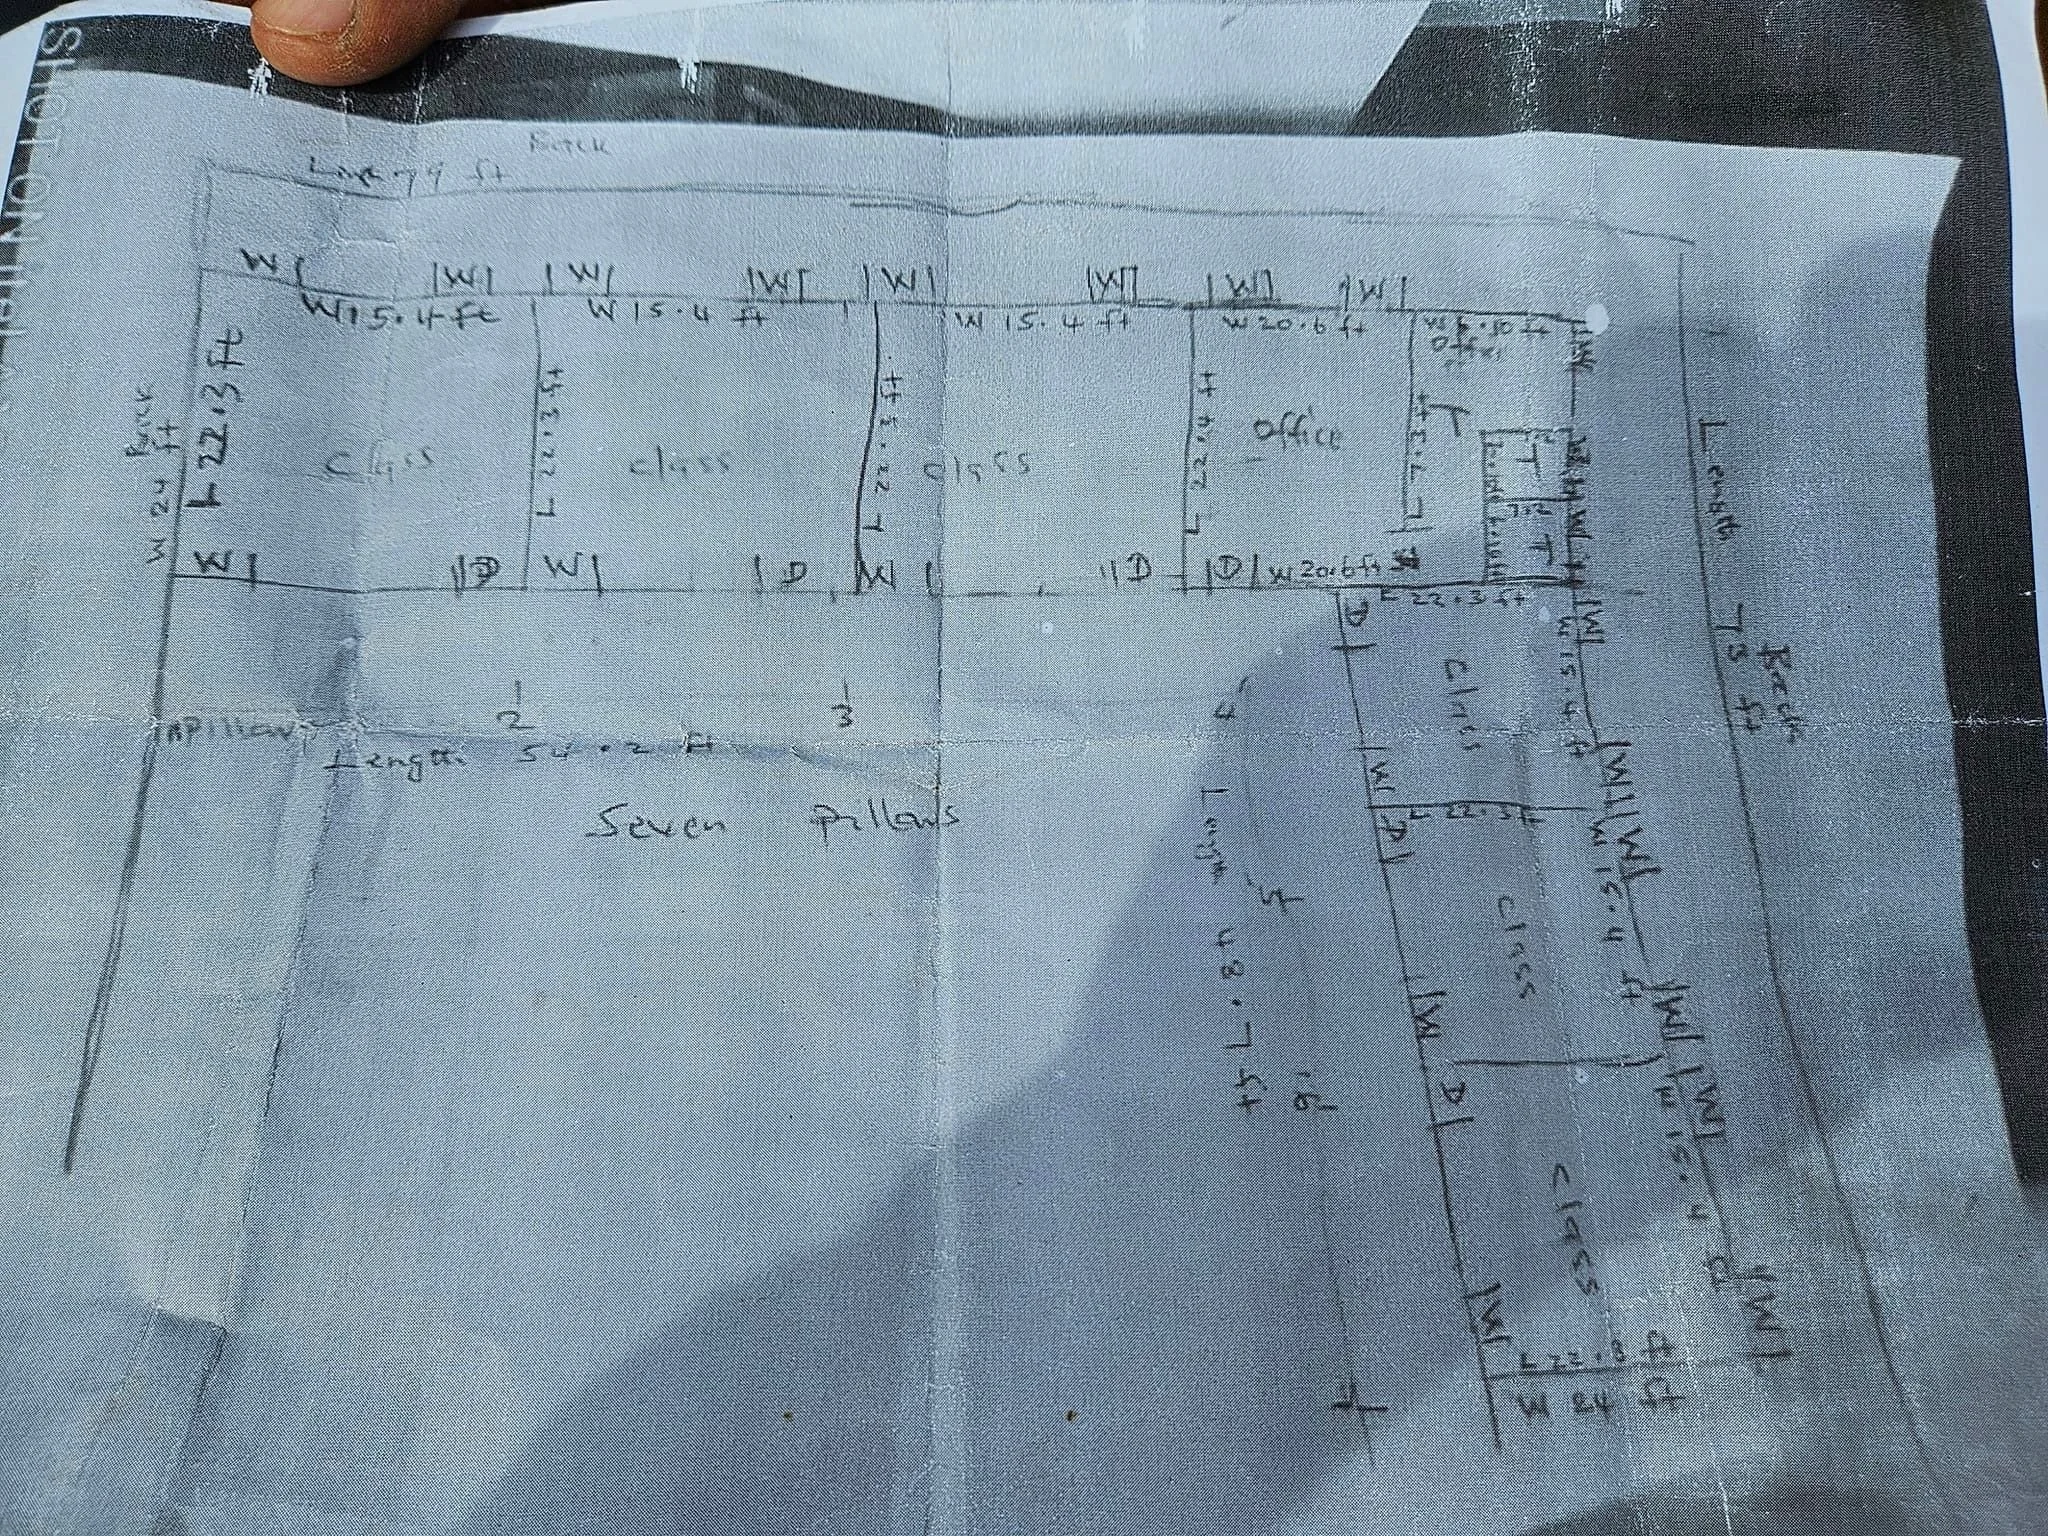 SHOT ON itel
Back
79 ft
W W W W W W W W
W 15.4 ft W 15.4 ft W 15.4 ft W 20.6 ft
Office
W
L 22.3 ft
L 22.3 ft
L 22.3 ft
L 22.4 ft
L 7.3 ft
Back
W 24 ft
class class class office
T
T
T
W D W D W D D W 20.6 ft
L 22.3 ft
Length 73 ft
Back
D W
W 15.4 ft
class
W D
L 22.3 ft
W W
W 15.4 ft
class
W D
W W
W 15.4
class
W W
L 22.3 ft
W 24 ft
1 Pillow 2 3 4
Length 54.2 ft
Seven Pillows
Length 48.7 ft
5
6
7